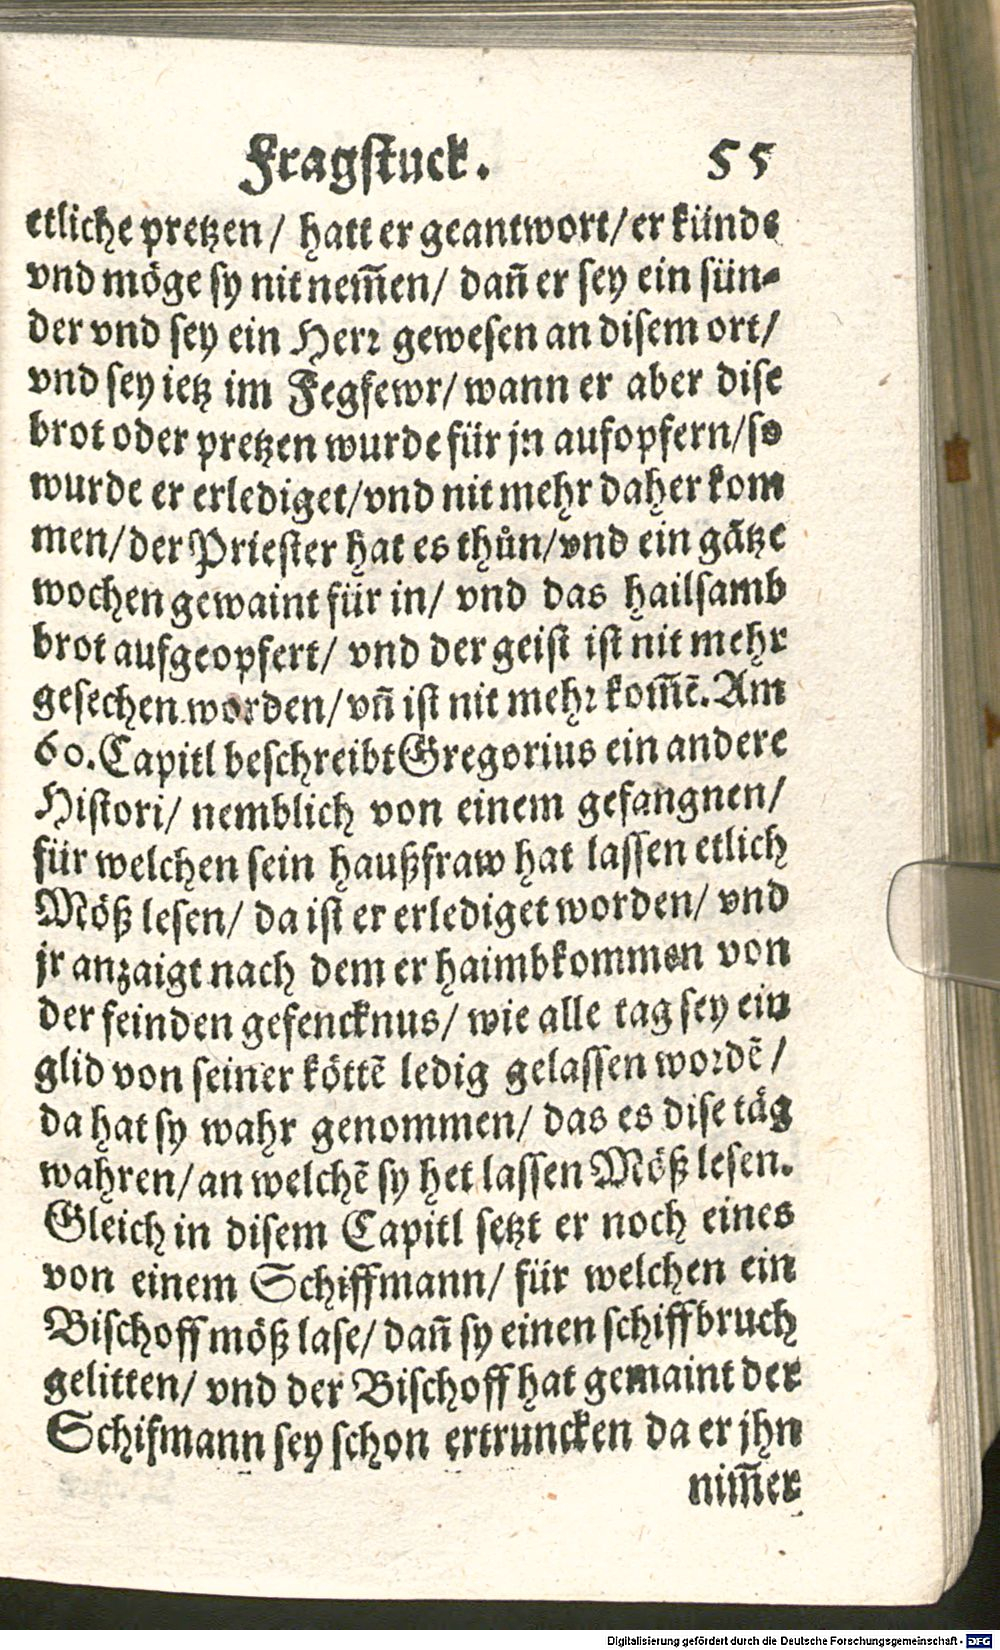 Fragstuck. 55
etliche pretzen/ hatt er geantwort/er künde
vnd möge sy nit nem̃en/ dañ er sey ein sün-
der vnd sey ein Herr gewesen an disem ort/
vnd sey ietz im Fegfewr/wann er aber dise
brot oder pretzen wurde für jn aufopfern/so
wurde er erlediget/vnd nit mehr daher kom
men/der Priester hat es thůn/vnd ein gätze
wochen gewaint für in/ vnd das hailsamb
brot aufgeopfert/ vnd der geist ist nit mehr
gesechen worden/vñ ist nit mehr kom̃ẽ. Am
60. Capitl beschreibt Gregorius ein andere
Histori/ nemblich von einem gefangnen/
für welchen sein haußfraw hat lassen etlich
Möß lesen/ da ist er erlediget worden/ vnd
jr anzaigt nach dem er haimbkommen von
der feinden gefencknus/ wie alle tag sey ein
glid von seiner köttẽ ledig gelassen wordẽ/
da hat sy wahr genommen/ das es dise täg
wahren/an welchẽ sy het lassen Möß lesen.
Gleich in disem Capitl setzt er noch eines
von einem Schiffmann/ für welchen ein
Bischoff möß lase/ dañ sy einen schiffbruch
gelitten/ vnd der Bischoff hat gemaint der
Schifmann sey schon ertruncken da er jhn
nim̃er
Digitalisierung gefördert durch die Deutsche Forschungsgemeinschaft - DFG